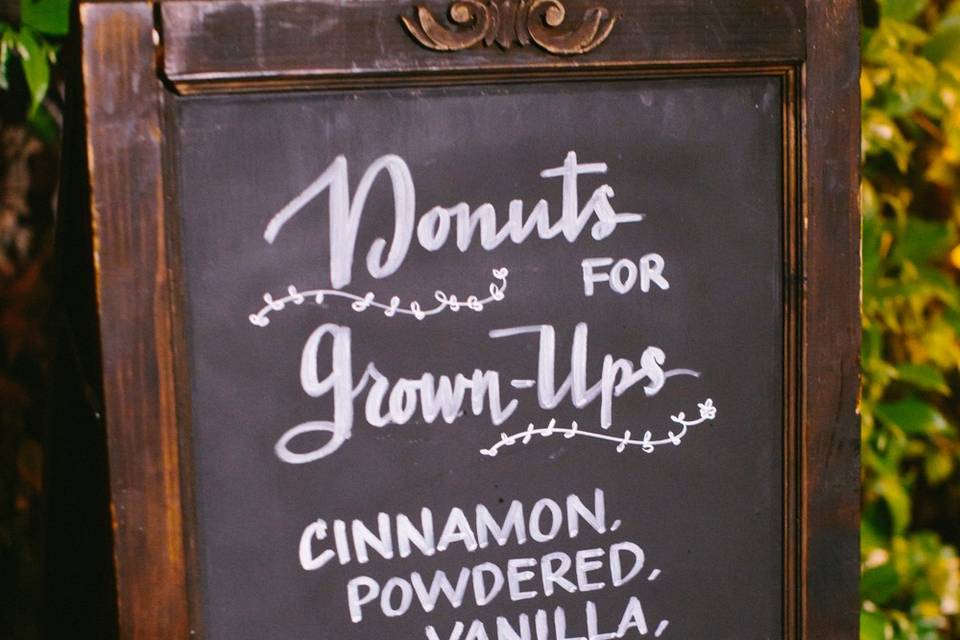 Donuts
FOR
Grown-Ups
CINNAMON,
POWDERED,
VANILLA,